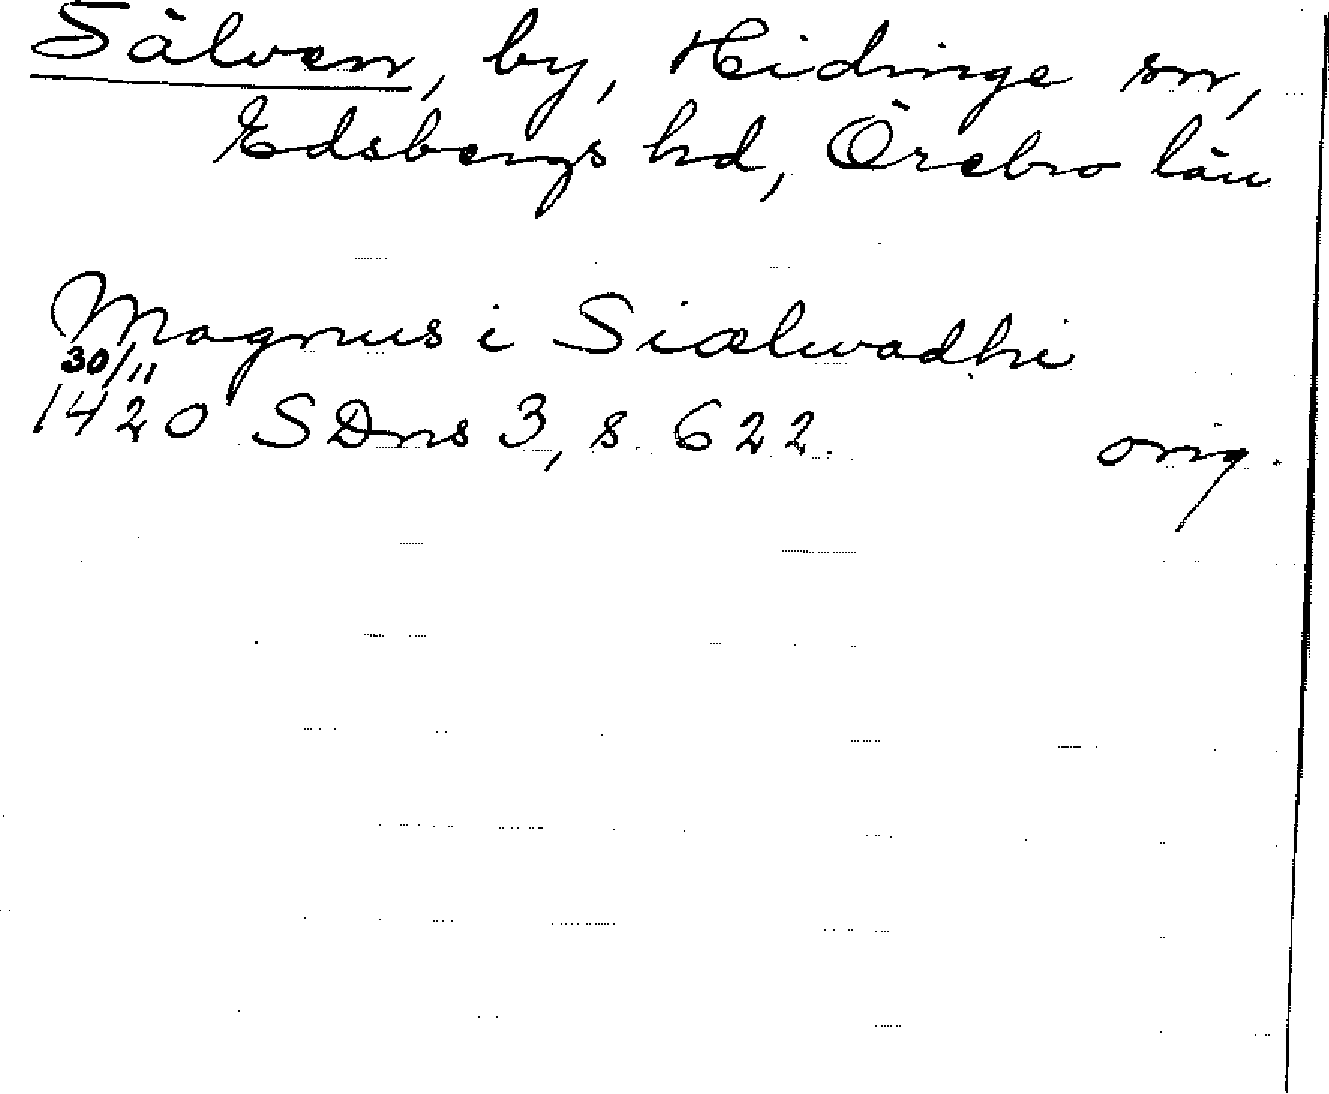 Sälven, by, Hidinge sn,
Edsbergs hd, Örebro län
Magnus i Siælwadhi
30/11
1420 SDns 3, s. 622. orig.